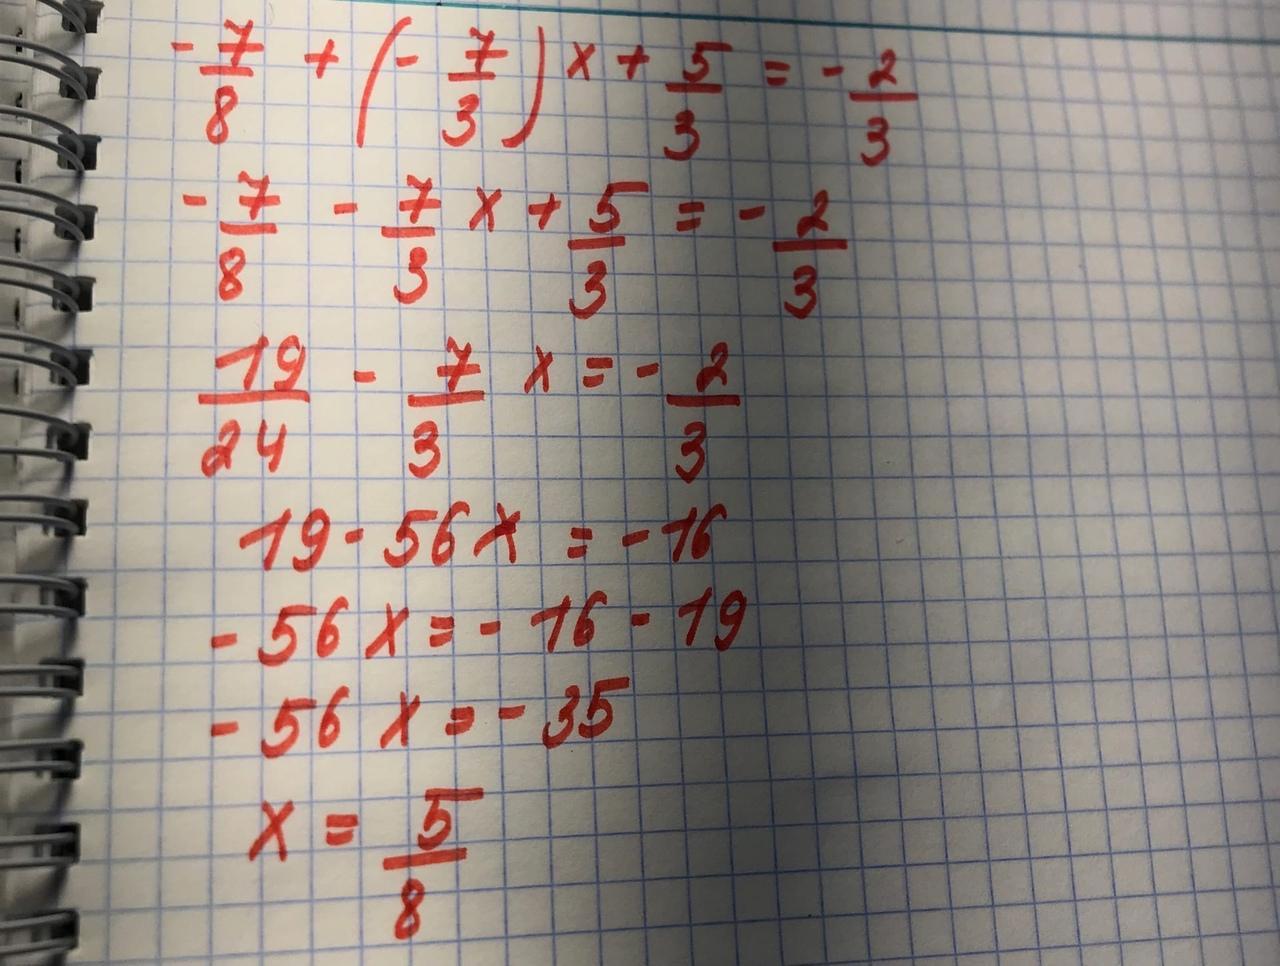 - 7/8 + (- 7/3) x + 5/3 = - 2/3
- 7/8 - 7/3 x + 5/3 = - 2/3
19/24 - 7/3 x = - 2/3
19 - 56 x = - 16
- 56 x = - 16 - 19
- 56 x = - 35
x = 5/8